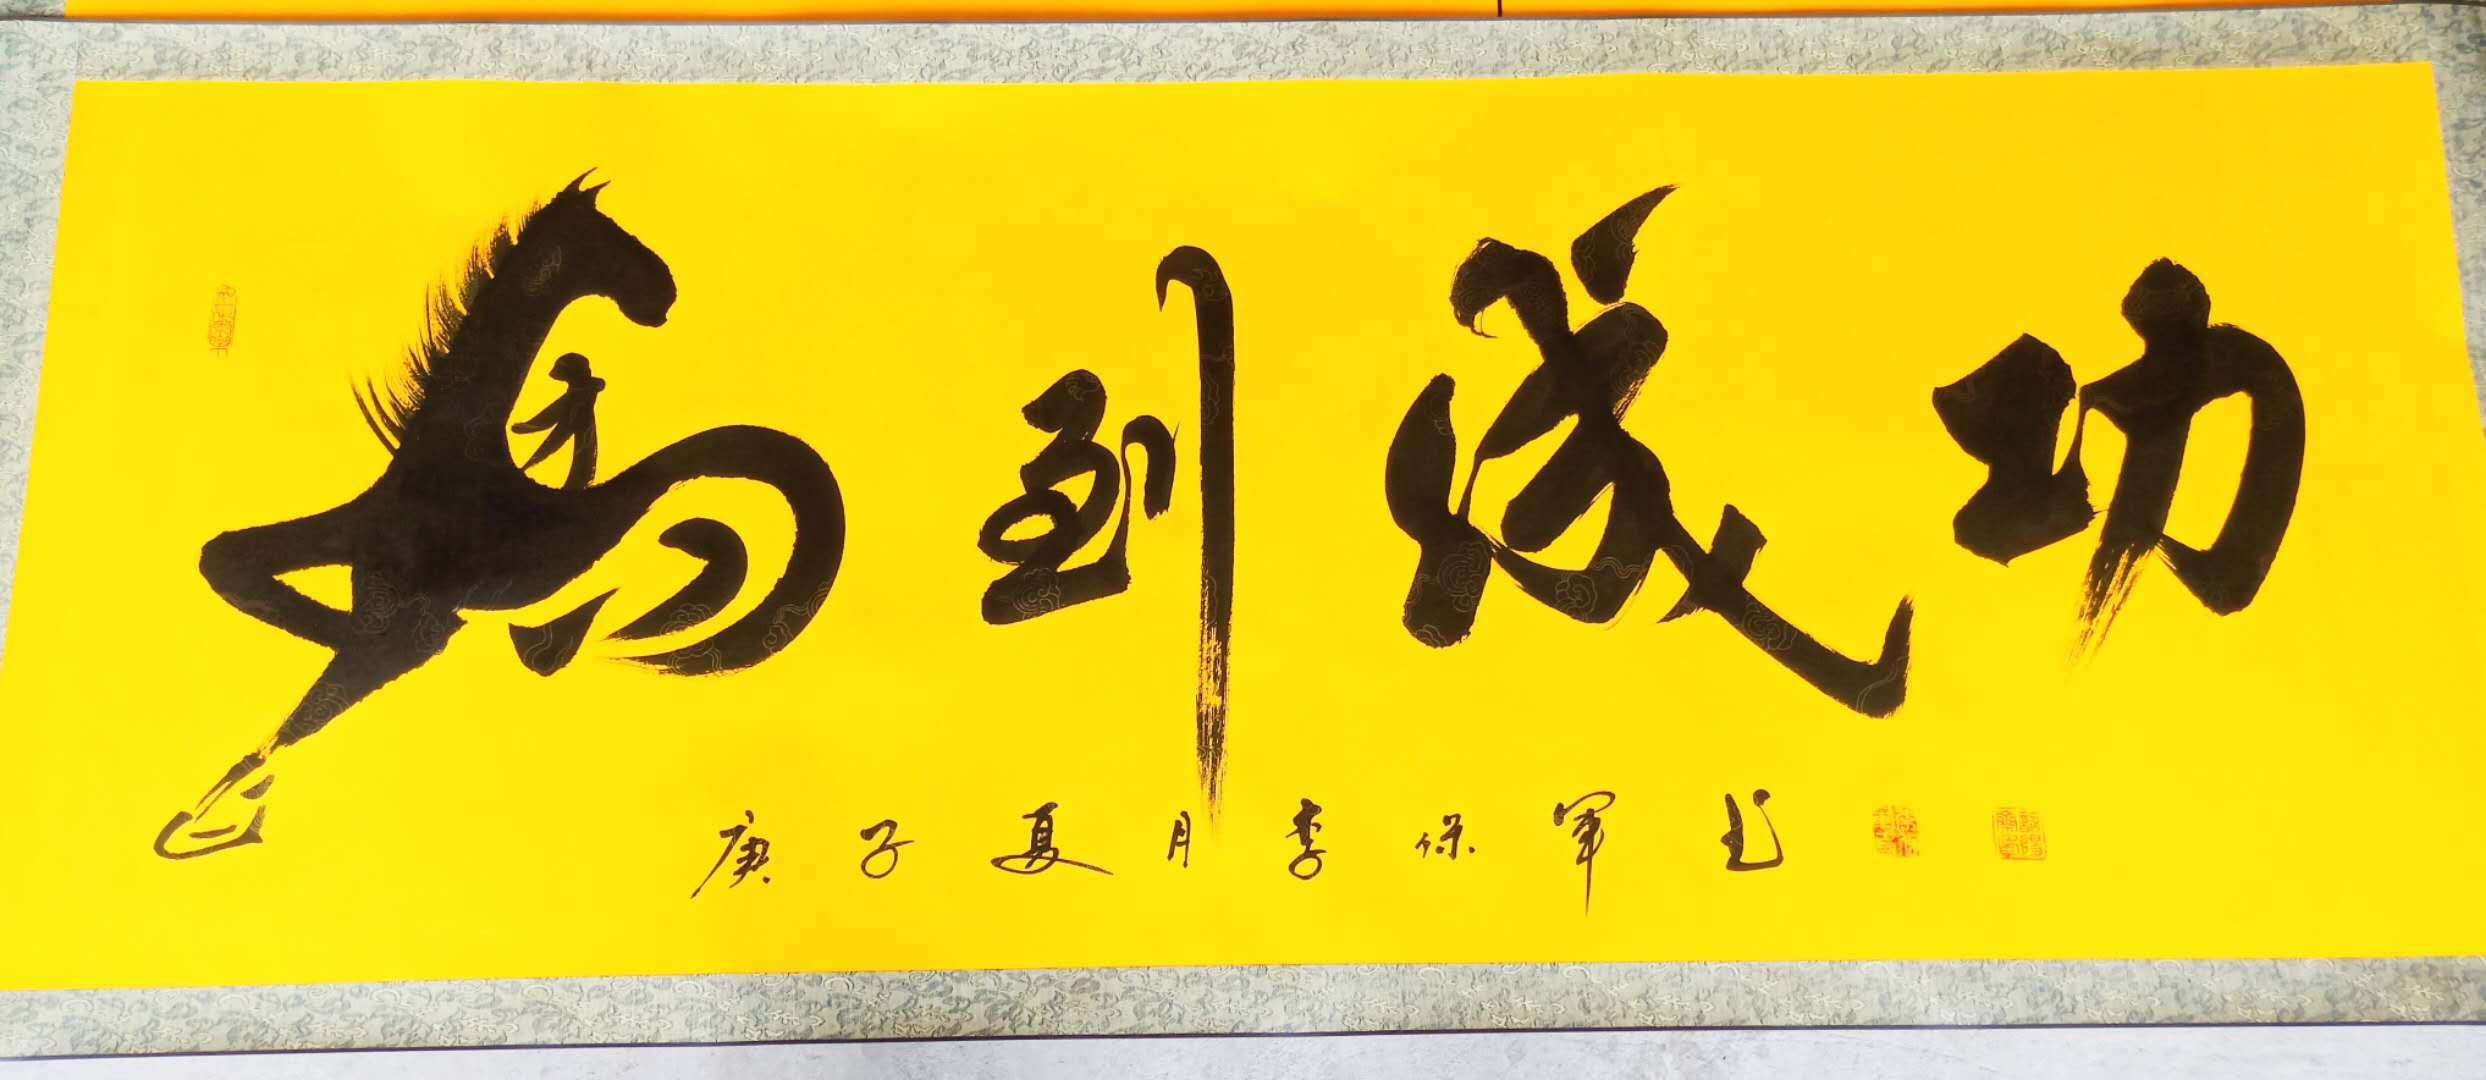 马到成功
庚子夏月李保军书